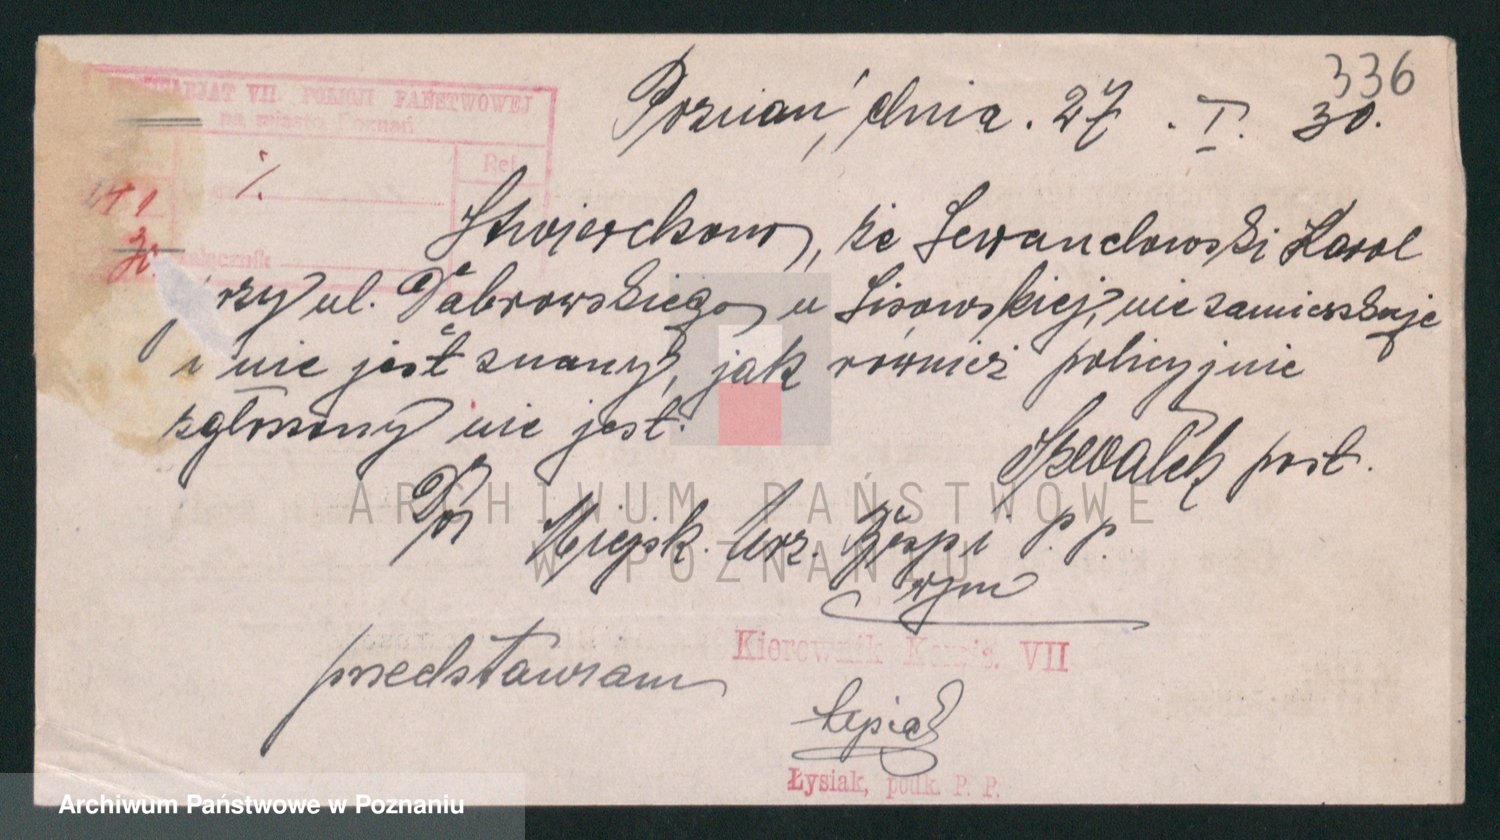 336
KOMISARJAT VII. POLICJI PAŃSTWOWEJ
na miasto Poznań
Ref.
załącznik
Poznań, dnia. 27. I. 30.
Stwierdzono, że Lewandowski Karol
przy ul. Dąbrowskiego u Lisowskiej, nie zamieszkuje
i nie jest znany, jak również policyjnie
zgłoszony nie jest.
Szwałek post.
Do Miejsk. Urz. P. P.
przedstawiam
Kierownik Komis. VII
Łysiak
Łysiak, podk. P. P.
ARCHIWUM PAŃSTWOWE
W POZNANIU
Archiwum Państwowe w Poznaniu